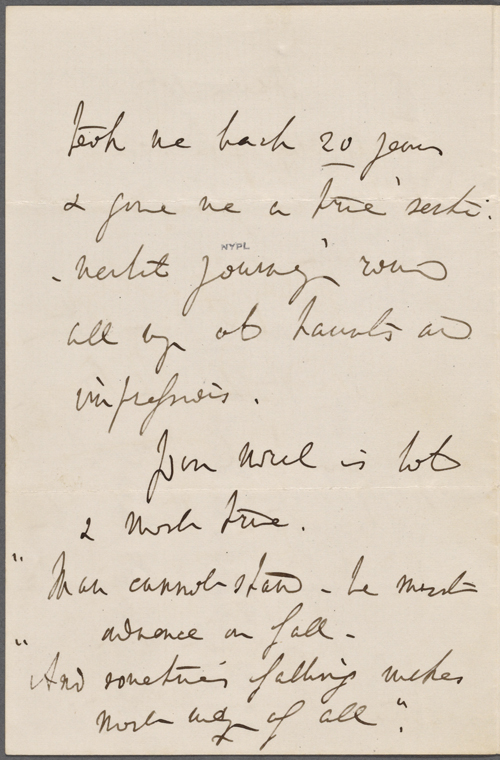 took me back 20 years
& gave me a 'true senti-
-mental journey' round
NYPL
all my old haunts and
impressions.
Your moral is bold
& most true.
"Man cannot stand - he must
advance or fall -
"And sometimes falling makes
most way of all".